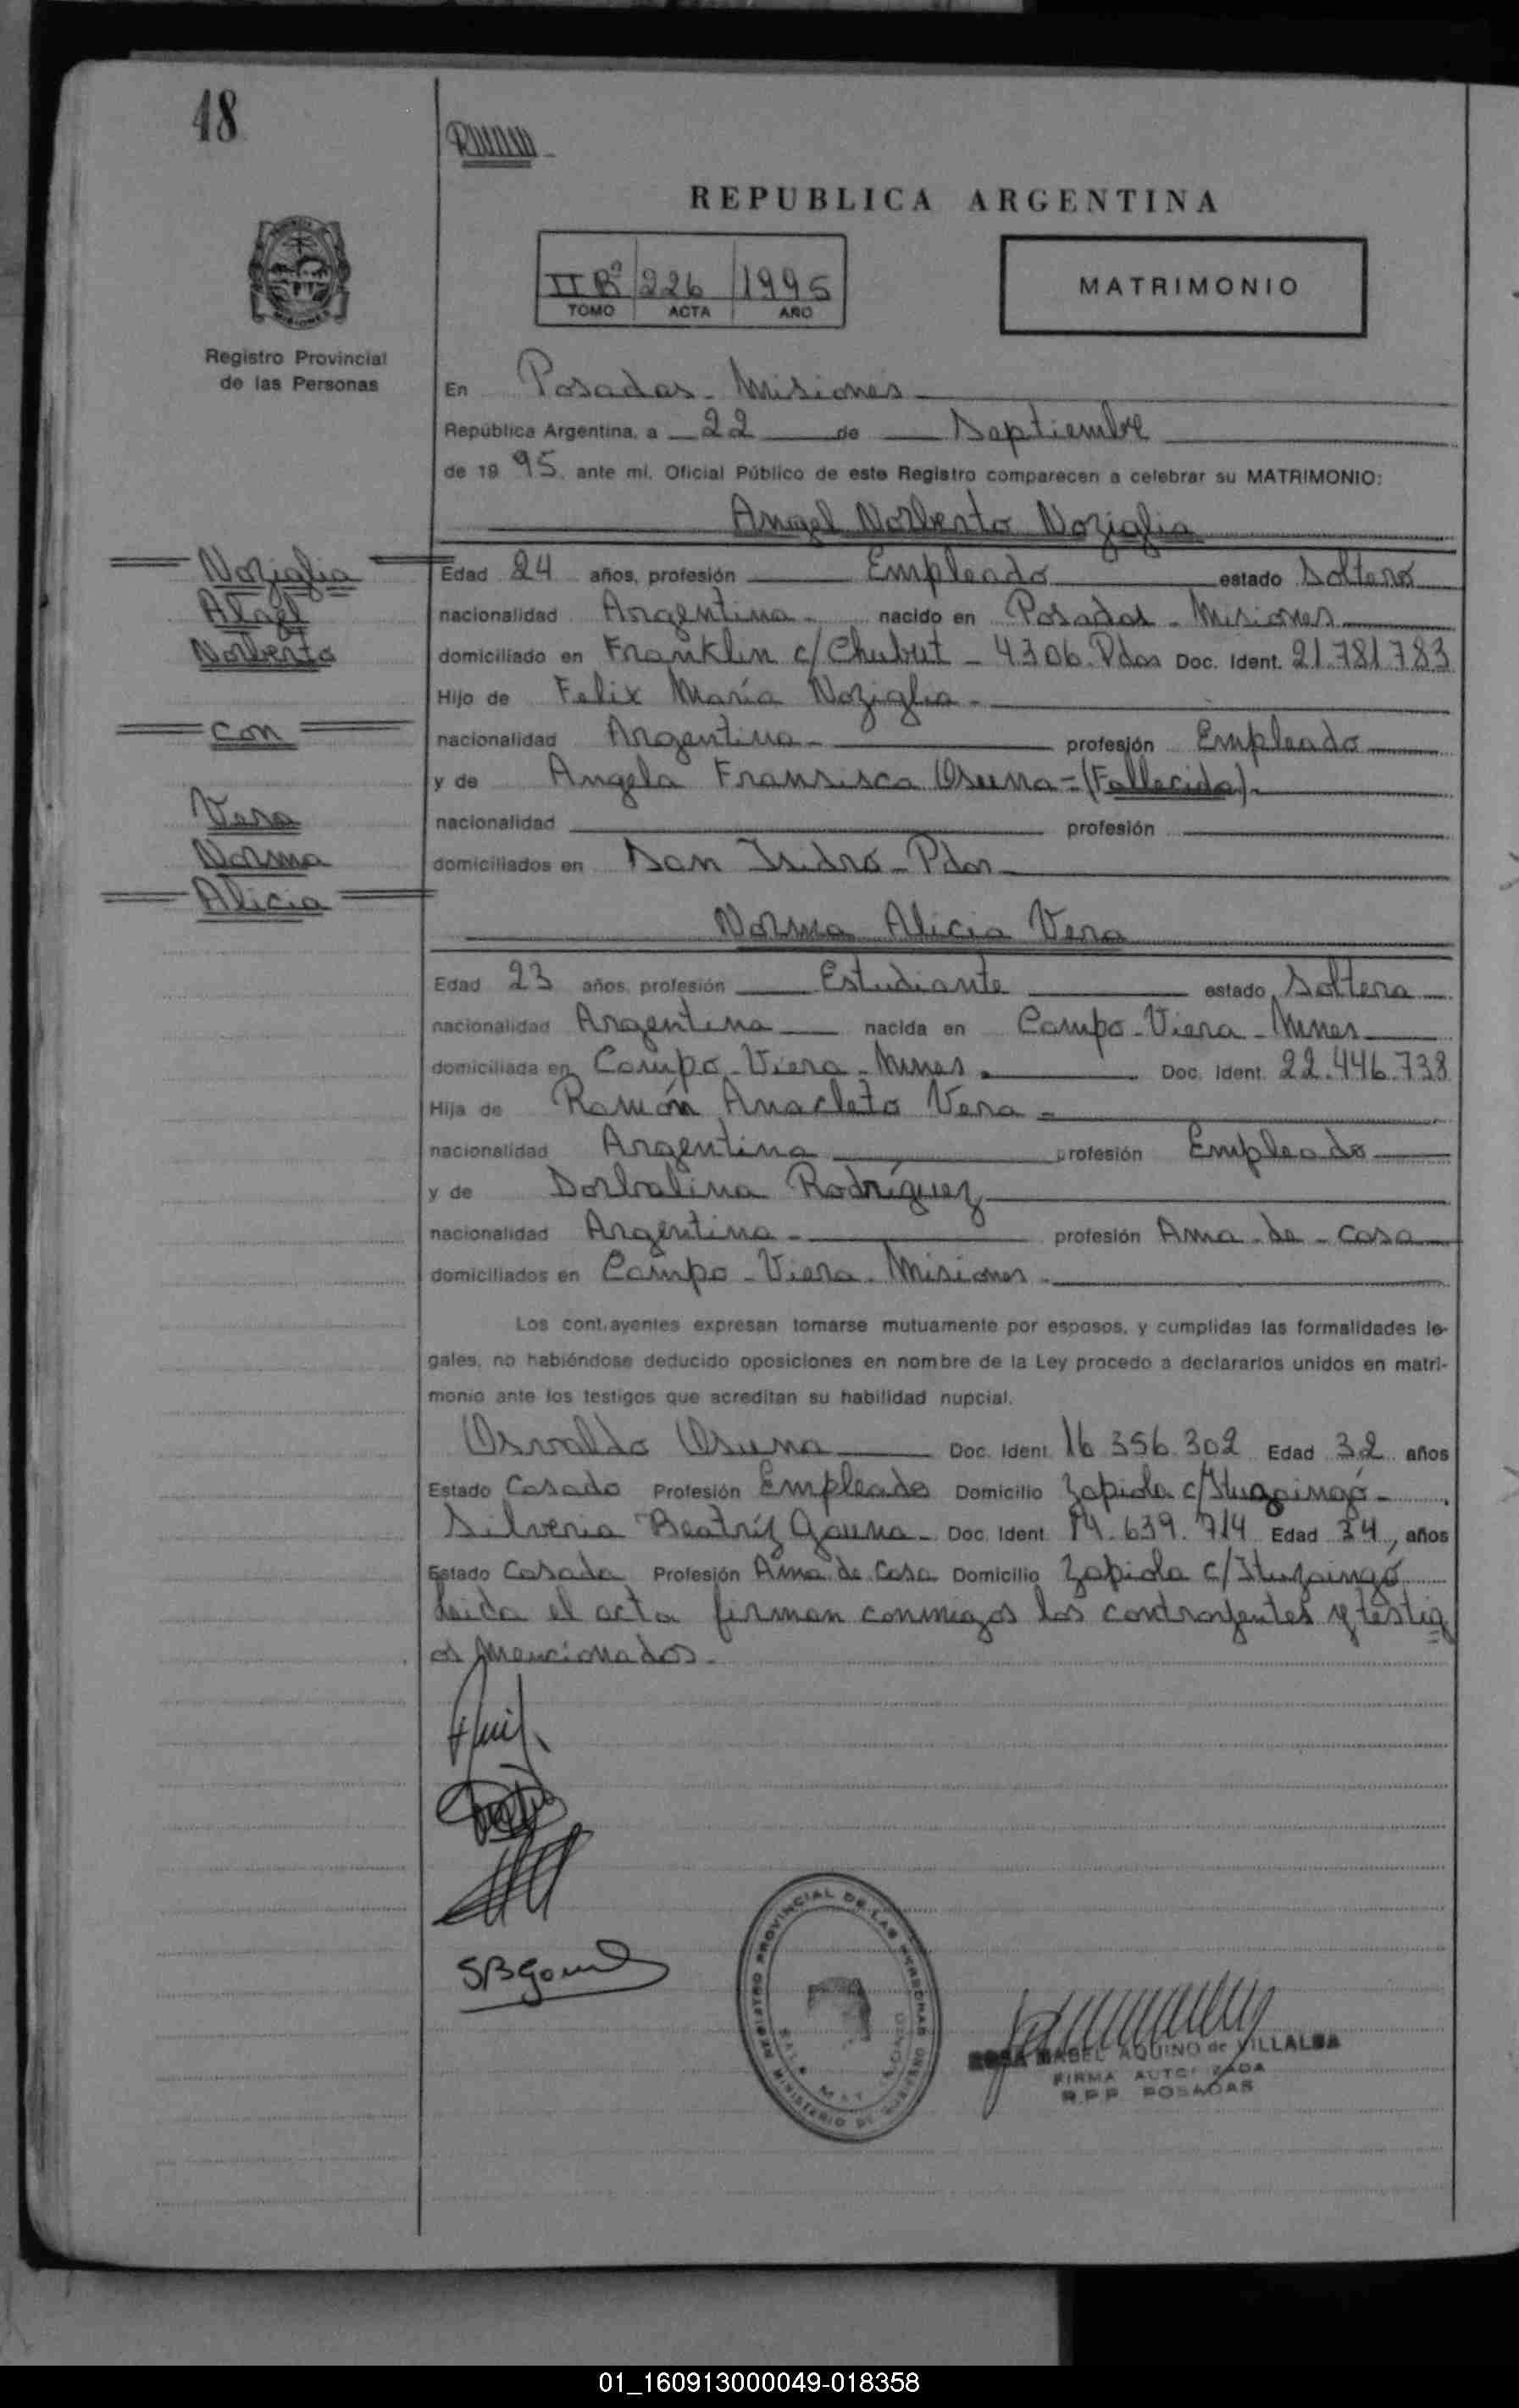 48
REPUBLICA ARGENTINA
II Bº 226 1995
TOMO ACTA AÑO
MATRIMONIO
Registro Provincial
de las Personas
En Posadas - Misiones
República Argentina, a 22 de Septiembre
de 19 95. ante mí, Oficial Público de este Registro comparecen a celebrar su MATRIMONIO:
Angel Norberto Noziglia
Noziglia
Angel
Norberto
con
Vera
Norma
Alicia
Edad 24 años, profesión Empleado estado Soltero
nacionalidad Argentina - nacido en Posadas - Misiones
domiciliado en Franklin c/ Chubut - 4306. Pdas Doc. Ident. 21.781.783
Hijo de Felix María Noziglia -
nacionalidad Argentina - profesión Empleado
y de Angela Fransisca Osuna = (Fallecida).
nacionalidad profesión
domiciliados en San Isidro - Pdas
Norma Alicia Vera
Edad 23 años, profesión Estudiante estado Soltera
nacionalidad Argentina nacida en Campo - Viera - Mnes
domiciliada en Campo - Viera - Mnes. Doc. Ident. 22.446.738
Hija de Ramón Anacleto Vera -
nacionalidad Argentina profesión Empleado
y de Dorbalina Rodríguez
nacionalidad Argentina - profesión Ama - de - casa
domiciliados en Campo - Viera - Misiones -
Los contrayentes expresan tomarse mutuamente por esposos, y cumplidas las formalidades le-
gales, no habiéndose deducido oposiciones en nombre de la Ley procedo a declararlos unidos en matri-
monio ante los testigos que acreditan su habilidad nupcial.
Osvaldo Osuna Doc. Ident. 16.356.302 Edad 32 años
Estado Casado Profesión Empleado Domicilio Zapiola c/ Ituzaingó -
Silveria Beatríz Gauna - Doc. Ident. 14.639.714 Edad 34, años
Estado Casada Profesión Ama de Casa Domicilio Zapiola c/ Ituzaingó
Leida el acta firman conmigos los contrayentes y testig
os mencionados -
SBGauna
REGISTRO PROVINCIAL DE LAS PERSONAS
MINISTERIO DE GOBIERNO
ROSA MABEL AQUINO de VILLALBA
FIRMA AUTORIZADA
R.P.P. POSADAS
01_160913000049-018358